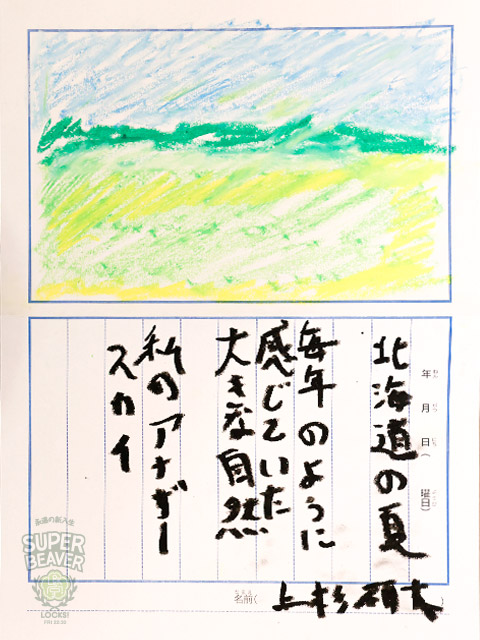 年 月 日( 曜日)
北海道の夏
毎年のように
感じていた
大きな自然
私のアナザー
スカイ
名前( 上杉研太 )
永遠の新入生
SUPER
BEAVER
LOCKS!